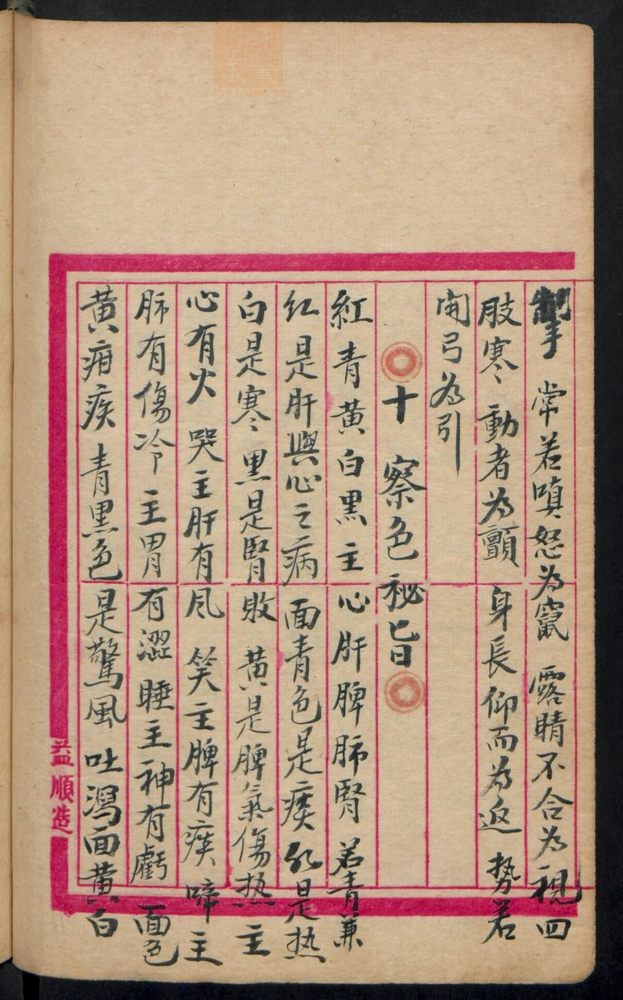 掣 常若嗔怒為竄 露睛不合為視四
肢寒 動者為顫 身長仰而為返 势若
開弓為引
十 察色秘旨
紅青黄白黒主心肝脾肺腎 若青兼
红是肝與心之病 面青色是痰 红是热
白是寒 黒是腎敗 黄是脾氣傷热主
心有火 哭主肝有風 笑主脾有痰 啼主
肺有傷冷 主胃有澀 睡主神有虧 面色
黄疳疾 青黒色是驚風 吐瀉面黄白
益順造